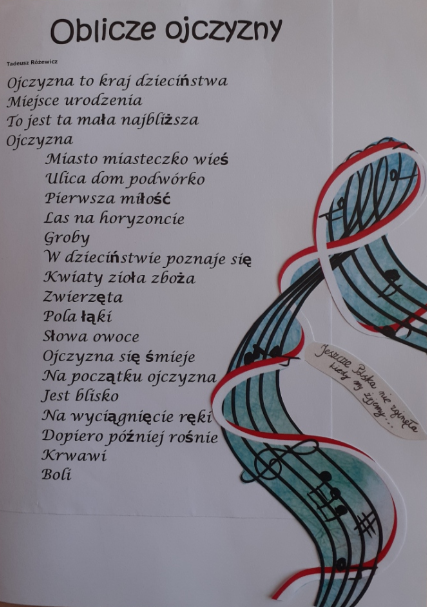 Oblicze ojczyzny
Tadeusz Różewicz
Ojczyzna to kraj dzieciństwa
Miejsce urodzenia
To jest ta mała najbliższa
Ojczyzna
Miasto miasteczko wieś
Ulica dom podwórko
Pierwsza miłość
Las na horyzoncie
Groby
W dzieciństwie poznaje się
Kwiaty zioła zboża
Zwierzęta
Pola łąki
Słowa owoce
Ojczyzna się śmieje
Na początku ojczyzna
Jest blisko
Na wyciągnięcie ręki
Dopiero później rośnie
Krwawi
Boli
Jeszcze Polska nie zginęła
kiedy my żyjemy...